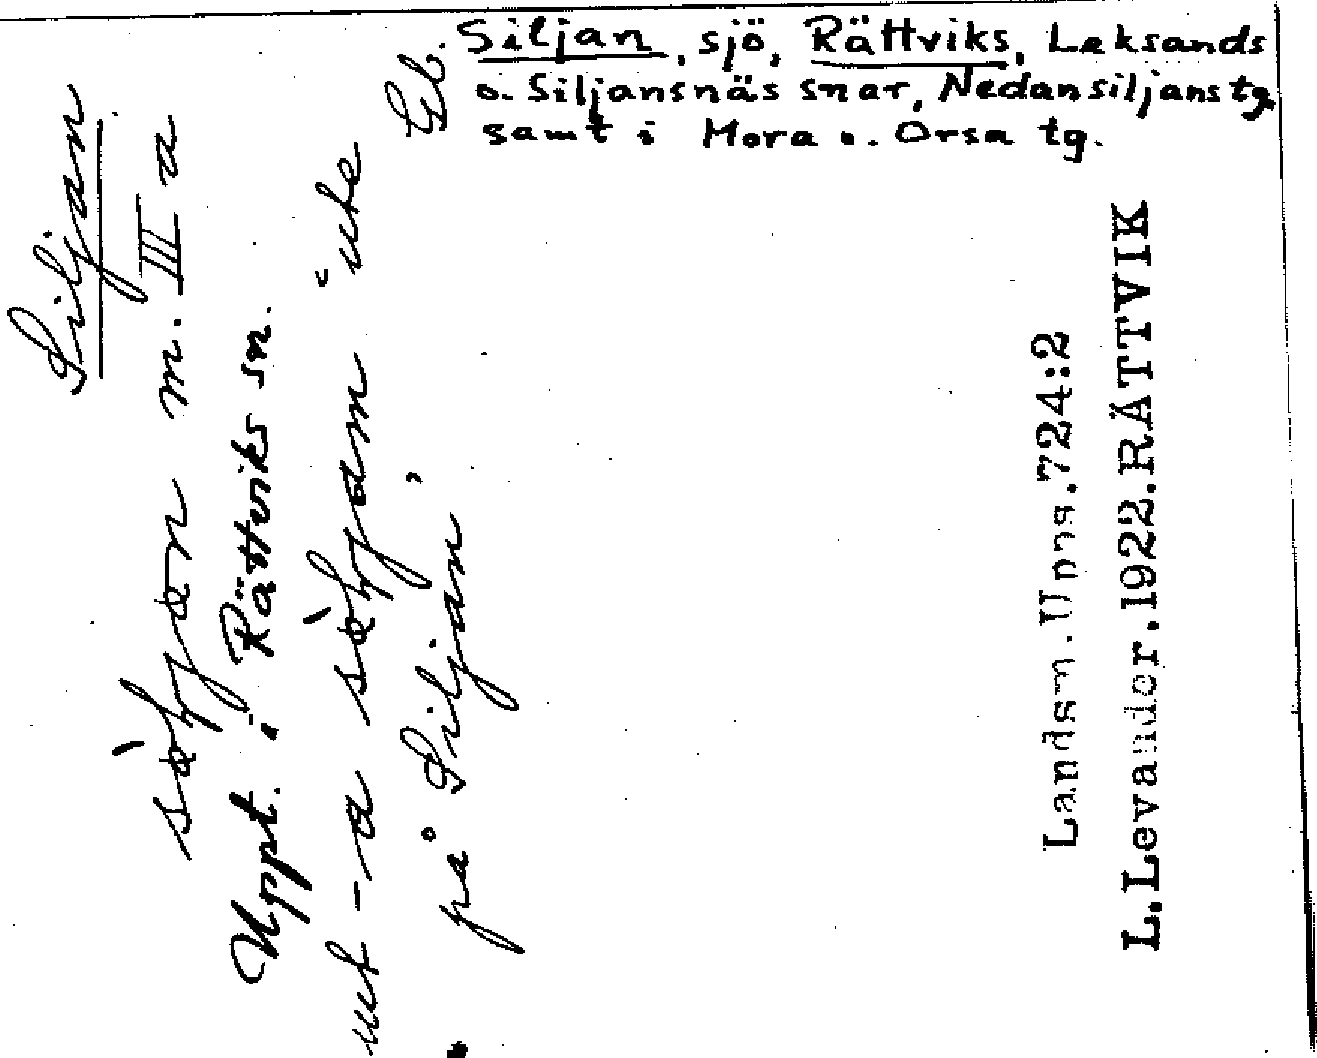 Siljan, sjö, Rättviks, Leksands
o. Siljansnäs snar, Nedansiljans tg
samt i Mora o. Orsa tg.
Siljan
m. III a
Uppt. i Rättviks sn.
ute
på Siljan,
Landsm. Upps. 724:2
L. Levander. 1922. RÄTTVIK